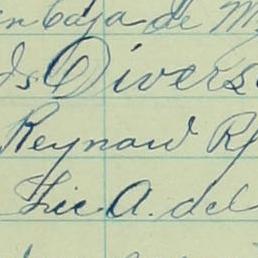 in Caja de M
ds Divers
Reynard R
Lic A. del